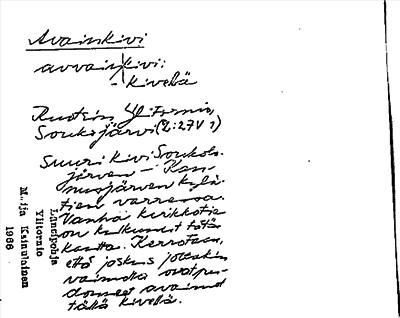 Avainkivi
avvainkivi:
- kivellä
Ruotsin, Yl
Soukojärvi (2:27V 1)
Suuri kivi Soukolo-
järven - Kan-
nusjärven kylä-
tien varressa.
Vanha kirkkotie
on kulkenut tätä
kautta. Kerrotaan,
että joskus jotakin
vaimolta ovat pu-
donneet avaimet
tällä kivellä.
Länsipohja
Ylitornio
M.ija Kainulainen
1986